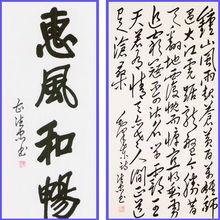 惠風和暢
鍾山風雨起蒼黃百萬雄師
過大江虎踞龍盤今勝昔
天翻地覆慨而慷宜將剩勇
追窮寇不可沽名學霸王
天若有情天亦老人間正道
是滄桑